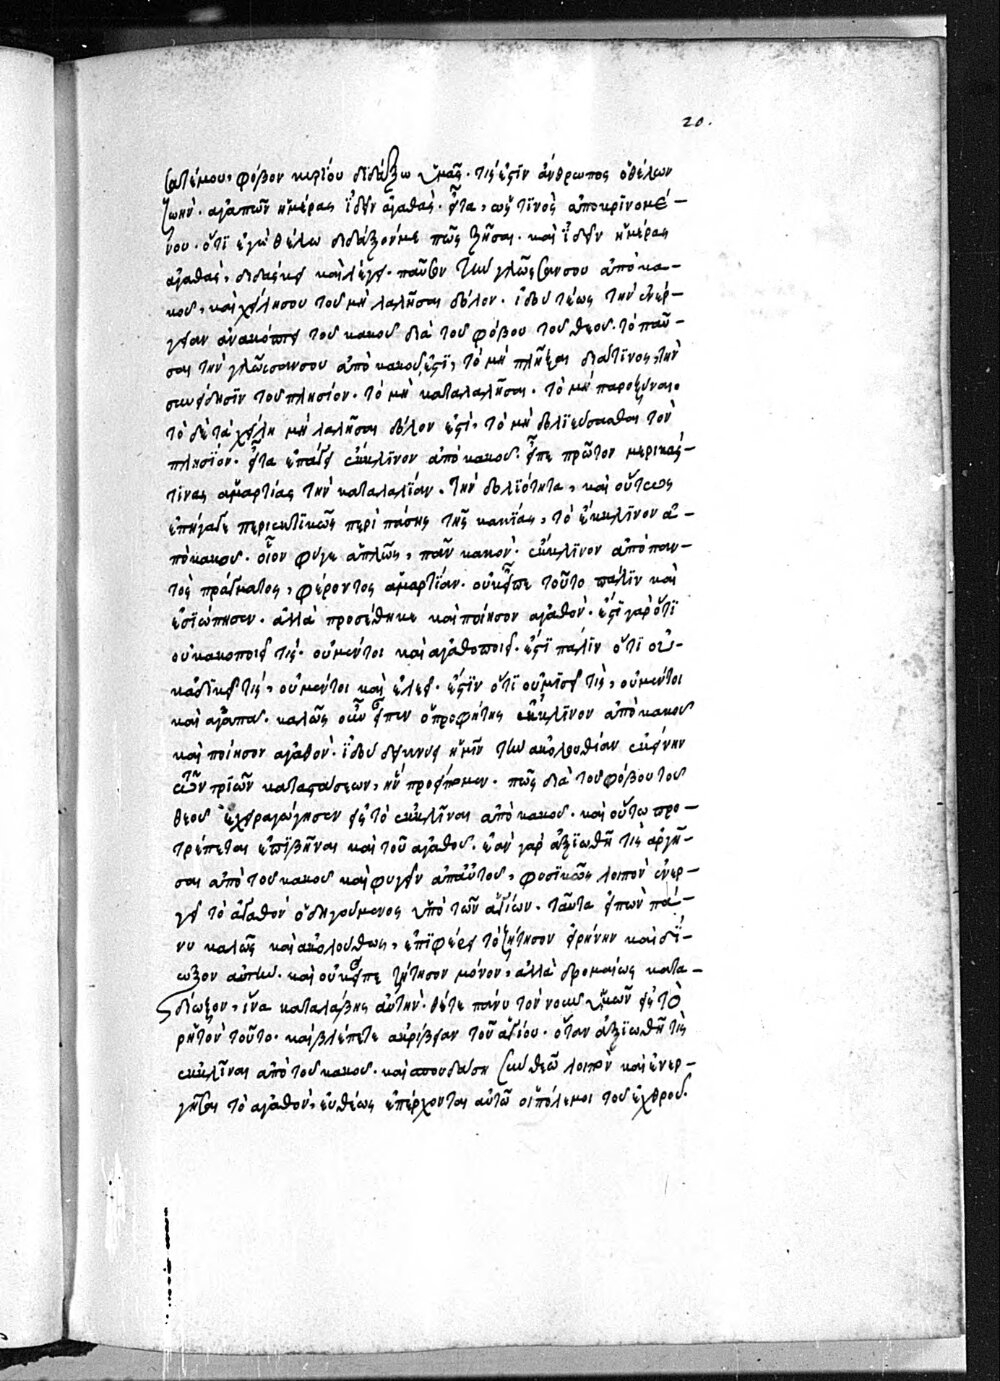 20.
σατέ μου· φόβον κυρίου διδάξω ὑμᾶς. τίς ἐστιν ἄνθρωπος ὁ θέλων
ζωὴν· ἀγαπῶν ἡμέρας ἰδεῖν ἀγαθάς. εἶτα, ὥς τινὸς ἀποκρινομέ-
νου· ὅτι ἐγὼ θέλω διδάξον με πῶς ζῆσαι. καὶ ἰδεῖν ἡμέρας
ἀγαθάς, διδάσκει καὶ λέγει· παῦσον τὴν γλῶσσαν σου ἀπὸ κα-
κοῦ, καὶ χείλη σου τοῦ μὴ λαλῆσαι δόλον. ἰδοὺ τέως τὴν ἐνέρ-
γειαν ἀνακόπτει τοῦ κακοῦ διὰ τοῦ φόβου τοῦ θεοῦ. τὸ παῦ-
σαι τὴν γλῶσσαν σου ἀπὸ κακοῦ ἐστι, τὸ μὴ πλῆξαι διά τινος, τὴν
συνείδησιν τοῦ πλησίον. τὸ μὴ καταλαλῆσαι. τὸ μὴ παροξῦναι.
τὸ δὲ τὰ χείλη μὴ λαλῆσαι δόλον ἐστὶ, τὸ μὴ δολιεύσασθαι τὸν
πλησίον. εἶτα ἐπάγει ἔκκλινον ἀπὸ κακοῦ. εἶπε πρῶτον μερικάς-
τινας ἁμαρτίας τὴν καταλαλίαν. τὴν δολιότητα, καὶ οὕτως
ἐπήγαγε περιεκτικῶς περὶ πάσης τῆς κακίας, τὸ ἔκκλινον ἀ-
πὸ κακοῦ. οἷον φύγε ἁπλῶς, πᾶν κακόν. ἔκκλινον ἀπὸ παν-
τὸς πράγματος, φέροντος ἁμαρτίαν. οὐκ εἶπε τοῦτο πάλιν καὶ
ἐσιώπησεν. ἀλλὰ προσέθηκε καὶ ποίησον ἀγαθόν. ἔστι γὰρ ὅτι
οὐ κακοποιεῖ τίς· οὐ μέντοι καὶ ἀγαθοποιεῖ. ἔστι πάλιν ὅτι οὐ-
κ ἀδικεῖ τίς, οὐ μέντοι καὶ ἐλεεῖ. ἔστιν ὅτι οὐ μισεῖ τὶς, οὐ μέντοι
καὶ ἀγαπᾶ. καλῶς οὖν εἶπεν ὁ προφήτης ἔκκλινον ἀπὸ κακοῦ
καὶ ποίησον ἀγαθόν. ἰδοὺ δείκνυσι ἡμῖν τὴν ἀκολουθίαν ἐκείνην
τῶν τριῶν καταστάσεων, ἣν προείπομεν. πῶς διὰ τοῦ φόβου τοῦ
θεοῦ ἐχειραγώγησεν εἰς τὸ ἐκκλῖναι ἀπὸ κακοῦ. καὶ οὕτω προ-
τρέπεται ἐπιβῆναι καὶ τοῦ ἀγαθοῦ. ἐὰν γὰρ ἀξιωθῆ τις ἀργῆ-
σαι ἀπὸ τοῦ κακοῦ καὶ φυγεῖν ἀπ' αὐτοῦ, φυσικῶς λοιπὸν ἐνερ-
γεῖ τὸ ἀγαθὸν ὁδηγούμενος ὑπὸ τῶν ἁγίων. ταῦτα εἰπὼν πά-
νυ καλῶς καὶ ἀκολούθως, ἐπιφέρει τὸ ζήτησον εἰρήνην καὶ δί-
ωξον αὐτήν. καὶ οὐκ εἶπε ζήτησον μόνον, ἀλλὰ δρομαίως κατα-
δίωξον, ἵνα καταλάβῃς αὐτήν. θέτε πάνυ τὸν νοῦν ὑμῶν εἰς τὸ
ρητὸν τοῦτο. καὶ βλέπετε ἀκρίβειαν τοῦ ἁγίου. ὅταν ἀξιωθῆ τὶς
ἐκκλῖναι ἀπὸ τοῦ κακοῦ. καὶ σπουδάση σὺν θεῶ λοιπὸν καὶ ἐνερ-
γῆσαι τὸ ἀγαθὸν, εὐθέως ἐπέρχονται αὐτῶ οἱ πόλεμοι τοῦ ἐχθροῦ.